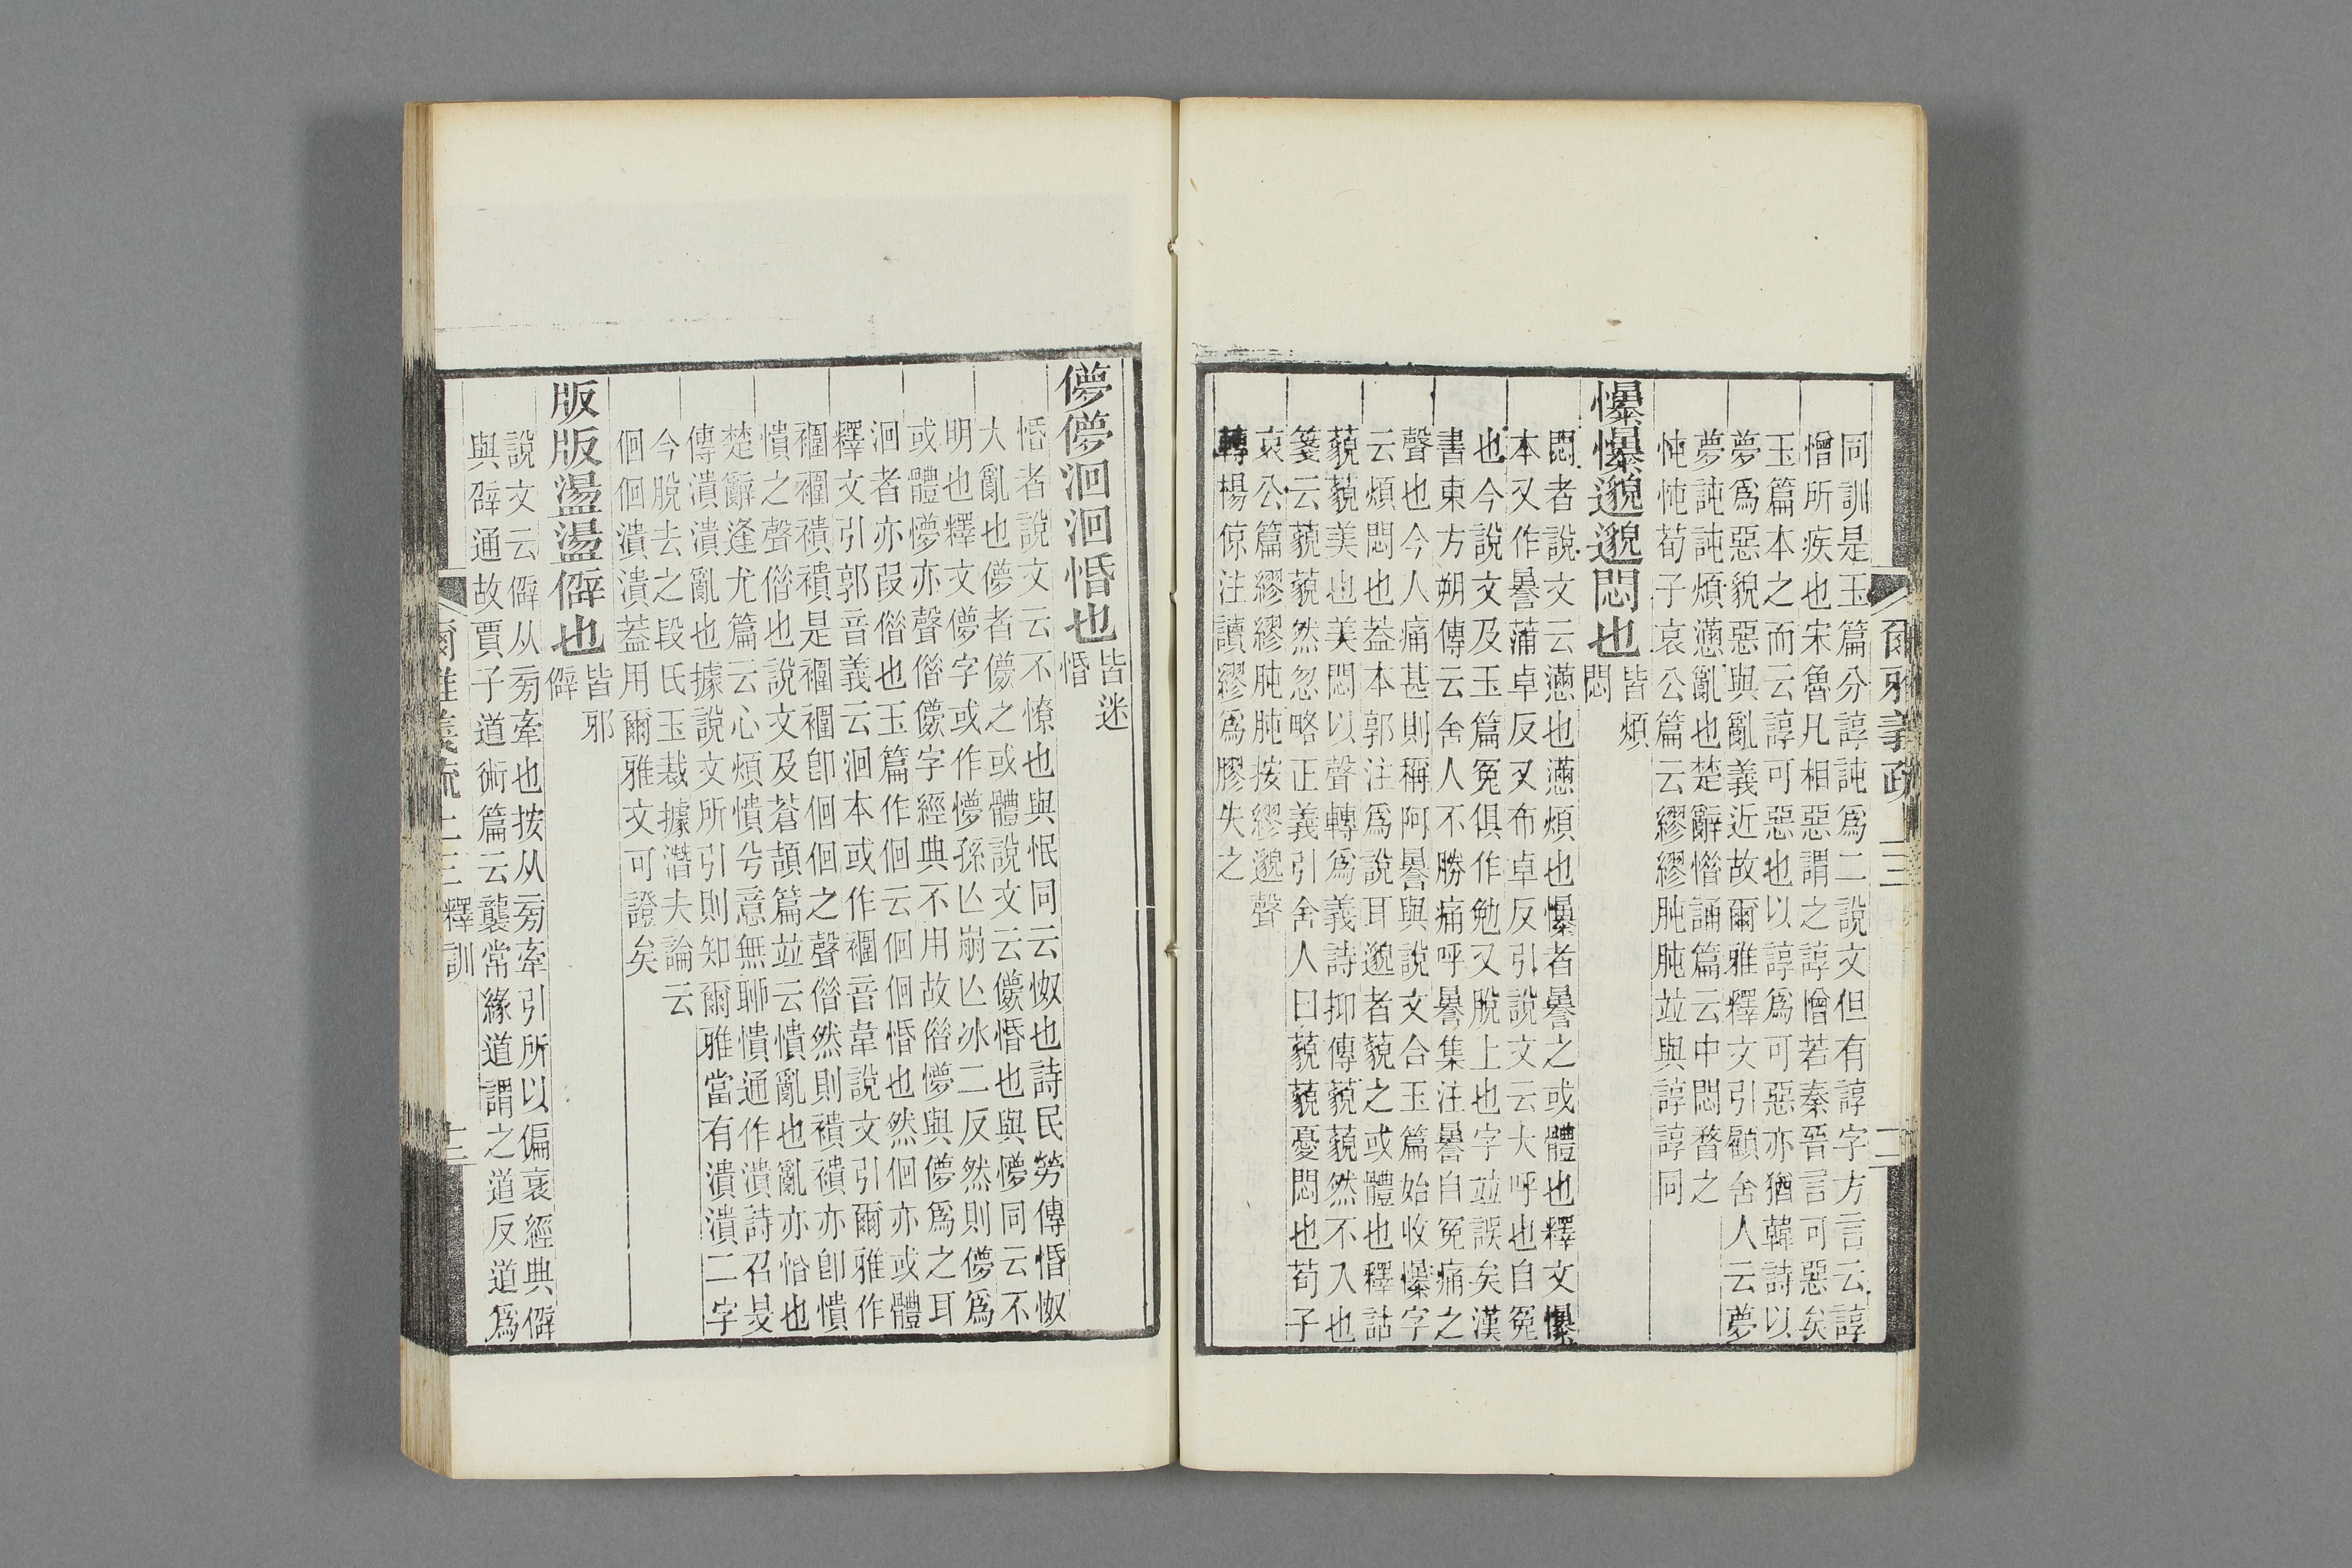 爾雅義疏
同訓是玉篇分諄訰爲二說文但有諄字方言云諄
憎所疾也宋魯凡相惡謂之諄憎若秦晉言可惡矣
玉篇本之而云諄可惡也以諄爲可惡亦猶韓詩以
夢爲惡貌惡與亂義近故爾雅釋文引顧舍人云夢
夢訰訰煩懣亂也楚辭惛誦篇云中悶瞀之
忳忳荀子哀公篇云繆繆肫肫並與諄諄同
懪懪邈邈悶也
皆煩
悶
悶者說文云懣也懣煩也懪者㬥之或體也釋文懪
本又作㬥蒲卓反又布卓反引說文云大呼也自冤
也今說文及玉篇冤俱作勉又脫上也字並誤矣漢
書東方朔傳云舍人不勝痛呼㬥集注㬥自冤痛之
聲也今人痛甚則稱阿㬥與說文合玉篇始收懪字
云煩悶也葢本郭注爲說耳邈者藐之或體也釋詁
藐藐美也美悶以聲轉爲義詩抑傳藐藐然不入也
箋云藐藐然忽略正義引舍人曰藐藐憂悶也荀子
哀公篇繆繆肫肫按繆邈聲
轉楊倞注讀繆爲膠失之
儚儚洄洄惛也
皆迷
惛
惛者說文云不憭也與怋同云怓也詩民勞傳惛怓
大亂也儚者儚之或體說文云儚惛也與懜同云不
明也釋文儚字或作懜孫亾崩亾冰二反然則儚爲
或體懜亦聲偕儚字經典不用故偕懜與儚爲之耳
洄者亦叚偕也玉篇作佪云佪佪惛也然佪亦或體
釋文引郭音義云洄本或作襘音韋說文引爾雅作
襘襘襀襀是襘襘卽佪佪之聲偕然則襀襀亦卽憒
憒之聲偕也說文及蒼頡篇並云憒亂也亂亦惛也
楚辭逢尤篇云心煩憒兮意無聊憒通作潰詩召旻
傳潰潰亂也據說文所引則知爾雅當有潰潰二字
今脫去之段氏玉裁據潛夫論云
佪佪潰潰葢用爾雅文可證矣
版版盪盪僻也
皆邪
僻
說文云僻从㫄牽也按从㫄牽引所以偏衺經典僻
與辟通故賈子道術篇云襲常緣道謂之道反道爲
爾雅義疏上三 釋訓 三